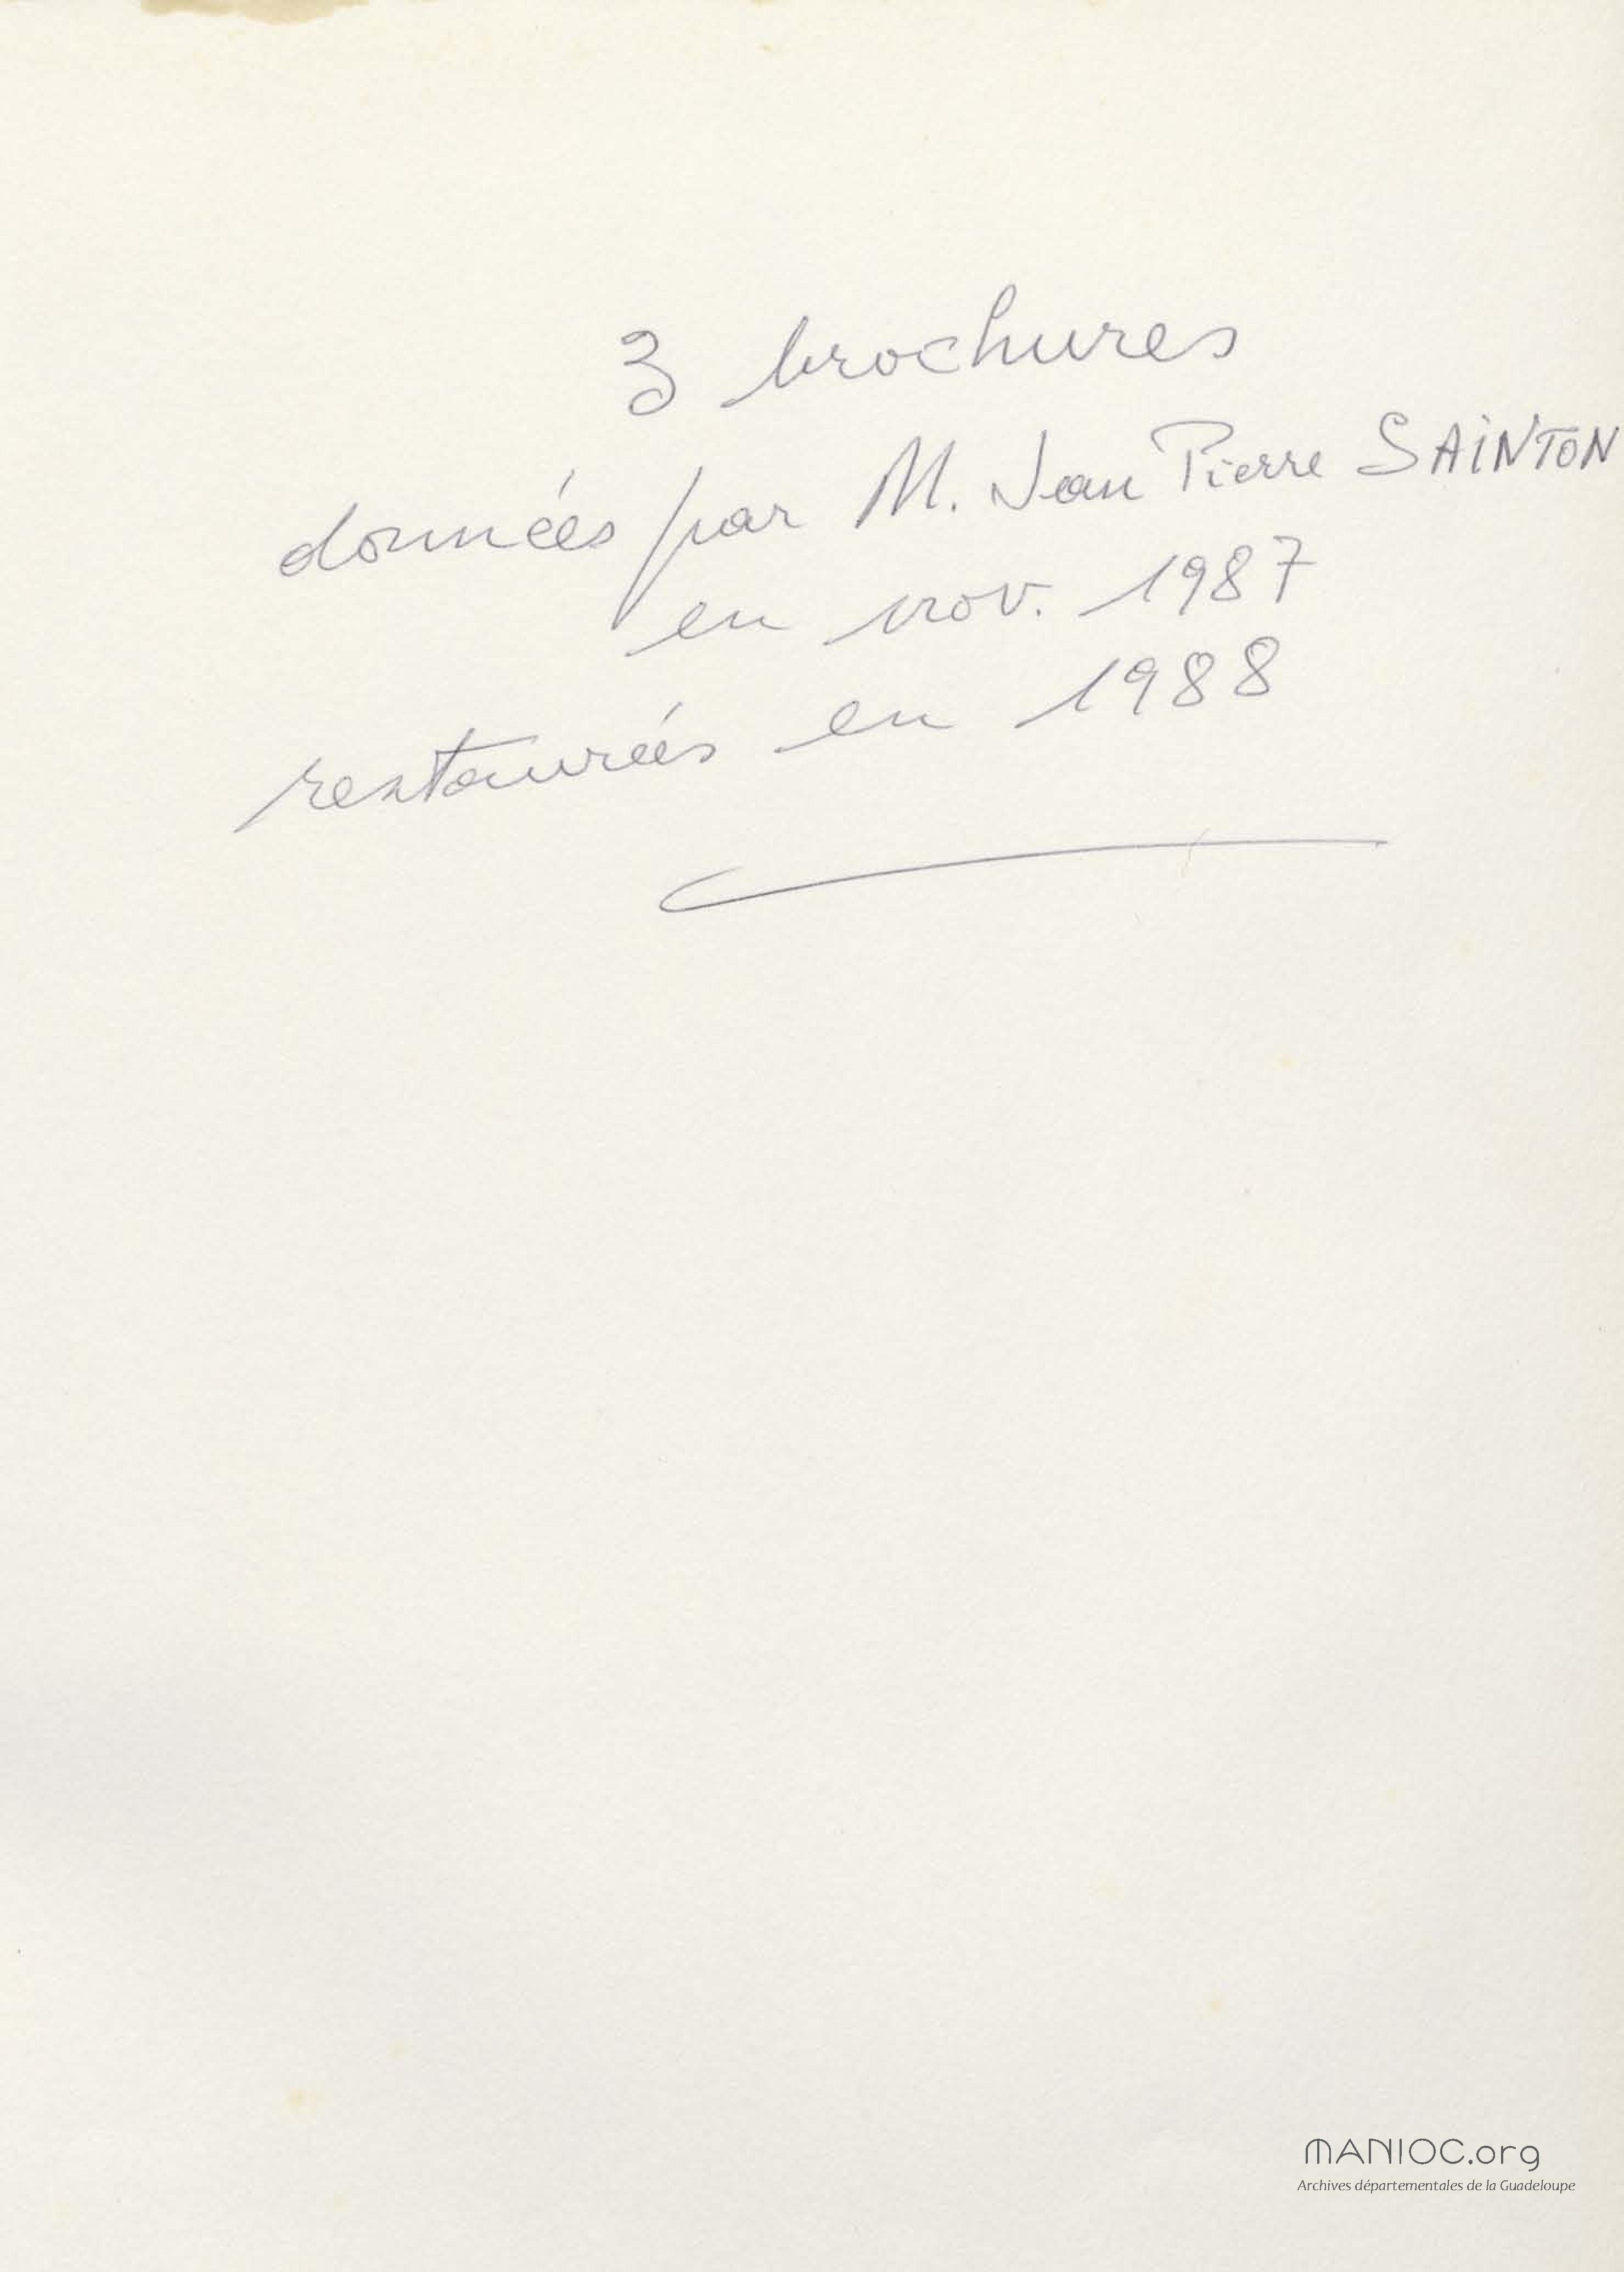 3 brochures
données par M. Jean Pierre SAINTON
en nov. 1987
restaurées en 1988
MANIOC.org
Archives départementales de la Guadeloupe